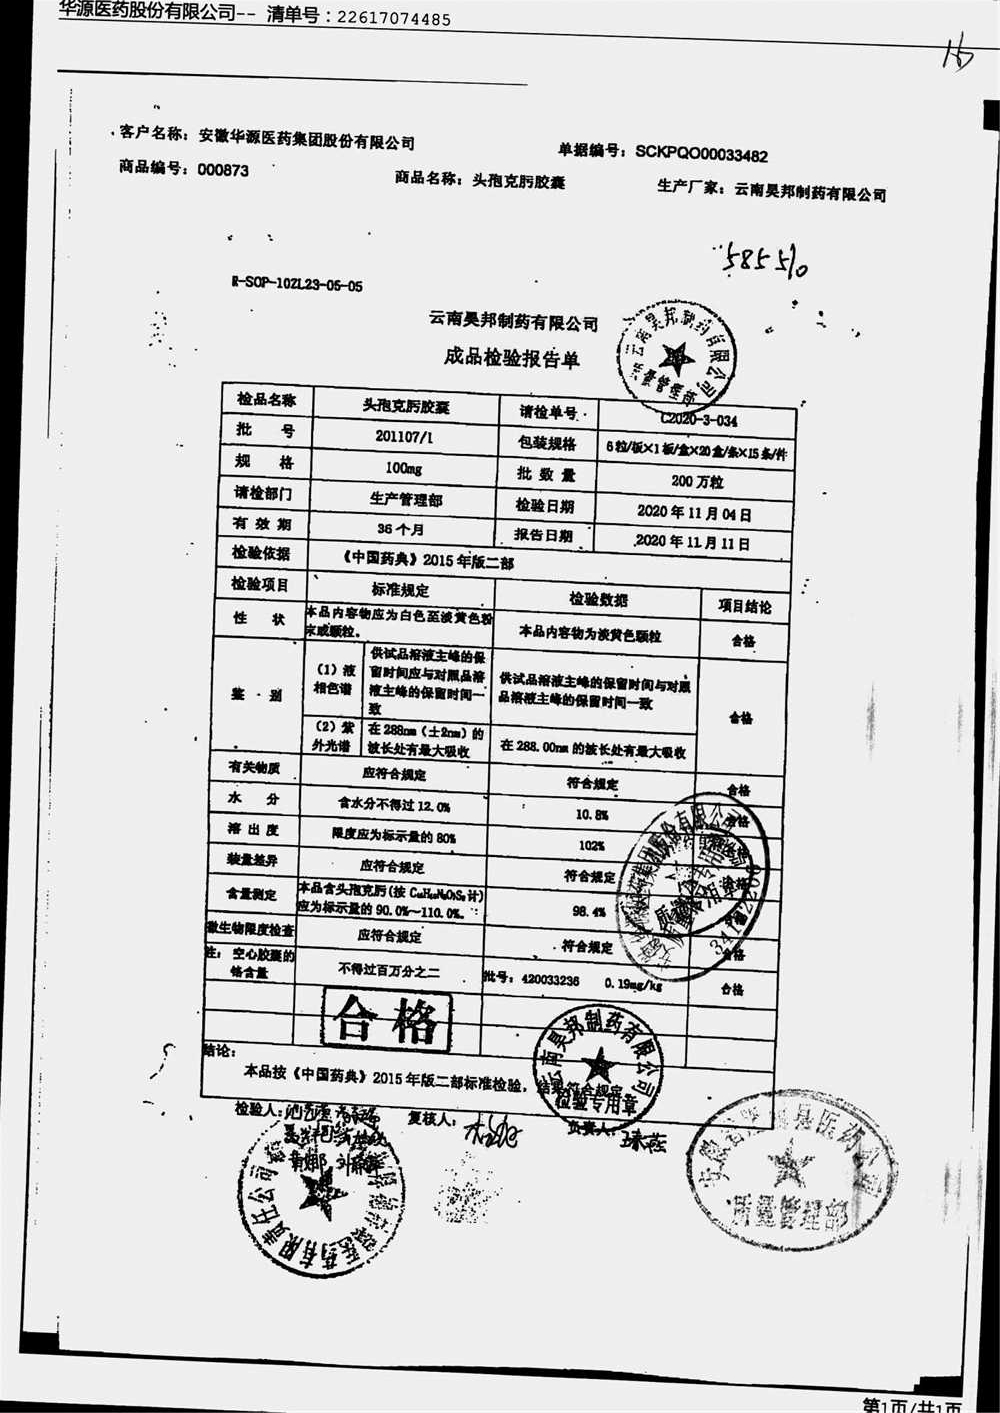 华源医药股份有限公司-- 清单号：22617074485
客户名称：安徽华源医药集团股份有限公司 单据编号：SCKPQO00033482
商品编号：000873 商品名称：头孢克肟胶囊 生产厂家：云南昊邦制药有限公司
58551/0
R-SOP-10ZL23-05-05
云南昊邦制药有限公司
成品检验报告单
云南昊邦制药有限公司
质量管理部
检品名称 头孢克肟胶囊 请检单号 C2020-3-034
批 号 201107/1 包装规格 6粒/板×1板/盒×20盒/条×15条/件
规 格 100mg 批数量 200万粒
请检部门 生产管理部 检验日期 2020年11月04日
有效期 36个月 报告日期 2020年11月11日
检验依据 《中国药典》2015年版二部
检验项目 标准规定 检验数据 项目结论
性 状 本品内容物应为白色至淡黄色粉末或颗粒。 本品内容物为淡黄色颗粒 合格
鉴别 (1)液相色谱 供试品溶液主峰的保留时间应与对照品溶液主峰的保留时间一致 供试品溶液主峰的保留时间与对照品溶液主峰的保留时间一致 合格
(2)紫外光谱 在288nm（±2nm）的波长处有最大吸收 在288.00nm的波长处有最大吸收
有关物质 应符合规定 符合规定 合格
水 分 含水分不得过12.0% 10.8% 合格
溶出度 限度应为标示量的80% 102%
装量差异 应符合规定 符合规定 合格
含量测定 本品含头孢克肟(按 计)应为标示量的90.0%~110.0%。 98.4%
微生物限度检查 应符合规定 符合规定 合格
注：空心胶囊的铬含量 不得过百万分之二 批号：420033236 0.19mg/kg 合格
合格
结论：
本品按《中国药典》2015年版二部标准检验，结果符合规定
云南昊邦制药有限公司
检验专用章
检验人： 复核人： 负责人：
质量管理部
第1页/共1页